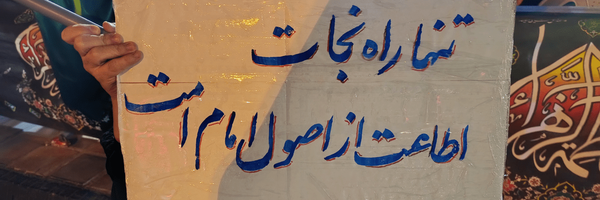 تنها راه نجات
اطاعت از اصول امام امت